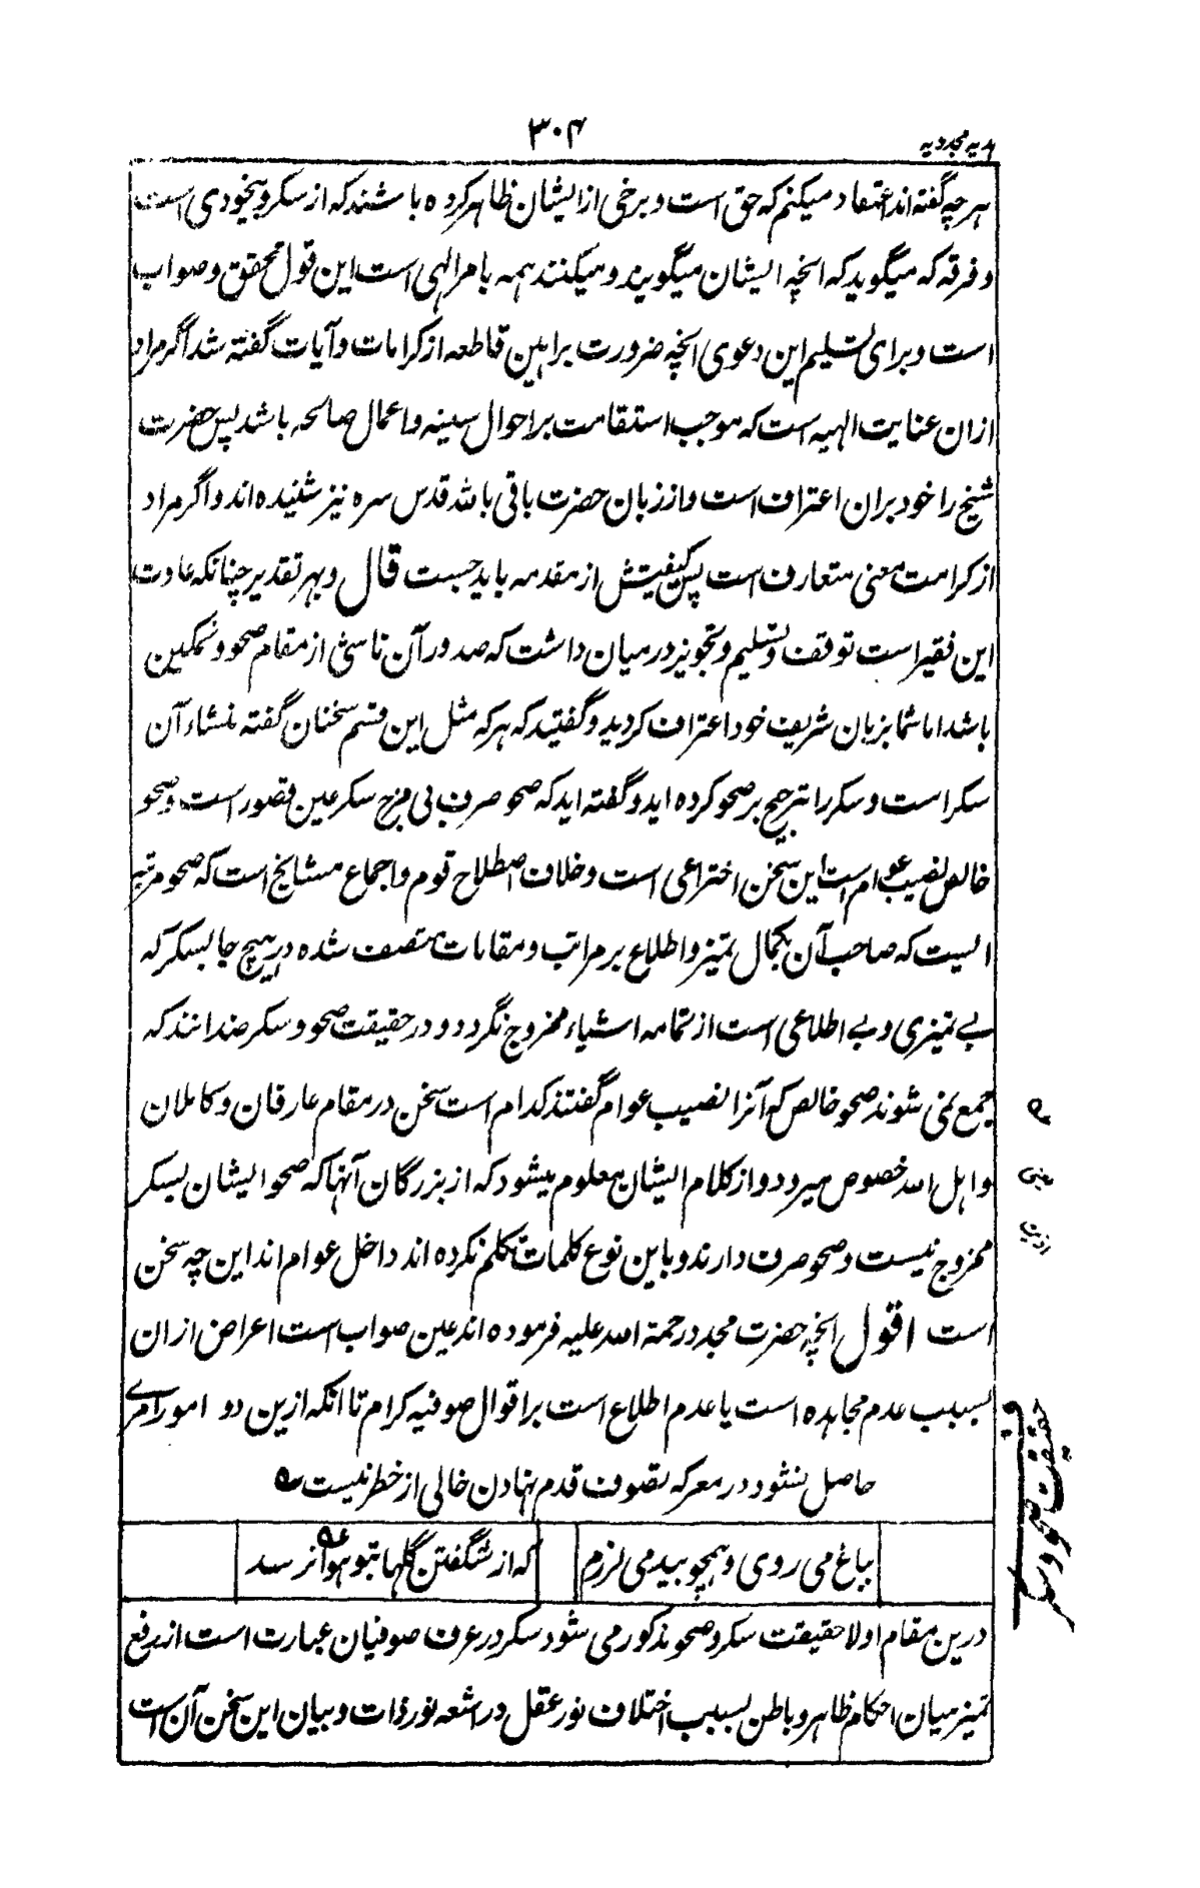 ۳۰۴
هدیه مجددیه
هرچه گفته اند اعتقاد میکنم که حق است و برخی از ایشان ظاهر کرده باشند که از سکر و بیخودی است
و فرقه که میگوید که آنچه ایشان میگویند و میکنند همه بامر الهی است این قول محقق و صواب
است و برای تسلیم این دعوی آنچه ضرورت براهین قاطعه از کرامات و آیات گفته شد اگر مراد
ازان عنایت الهیه است که موجب استقامت بر احوال سنیه و اعمال صالحه باشد پس حضرت
شیخ را خود بران اعتراف است و از زبان حضرت باقی بالله قدس سره نیز شنیده اند و اگر مراد
از کرامت معنی متعارف است پس کیفیتش از مقدمه باید جست قال و بهر تقدیر چنانکه عادت
این فقیر است توقف و تسلیم و تجویز درمیان داشت که صدور آن ناشی از مقام صحو و تمکین
باشد اما شما بزبان شریف خود اعتراف کردید و گفتید که هر که مثل این قسم سخنان گفته منشاء آن
سکر است و سکر را ترجیح بر صحو کرده اید و گفته اید که صحو صرف بی مزج سکر عین قصور است و صحو
خالص نصیب عوام است این سخن اختراعی است و خلاف اصطلاح قوم و اجماع مشایخ است که صحو مرتبه
ایست که صاحب آن بکمال تمیز و اطلاع بر مراتب و مقامات متصف شده در هیچ جا بسکر که
بے تمیزی و بے اطلاعی است از تمامه اشیاء ممزوج نگردد و در حقیقت صحو و سکر ضدانند که
جمع نمی شوند صحو خالص که آنرا نصیب عوام گفتند کدام است سخن در مقام عارفان و کاملان
و اهل الله خصوص میرود و از کلام ایشان معلوم میشود که از بزرگان آنها که صحو ایشان بسکر
ممزوج نیست و صحو صرف دارند و باین نوع کلمات تکلم نکرده اند داخل عوام اند این چه سخن
است اقول آنچه حضرت مجدد رحمة الله علیه فرموده اند عین صواب است اعراض ازان
بسبب عدم مجاهده است یا عدم اطلاع است بر اقوال صوفیه کرام تا آنکه ازین دو امور امرے
حاصل نشود در معرکه تصوف قدم نهادن خالی از خطر نیست ه
بباغ می روی و همچو بید می لرزم که از شگفتن گلها بتو هوا نرسد
درین مقام اولا حقیقت سکر و صحو مذکور می شود سکر در عرف صوفیان عبارت است از رفع
تمیز میان احکام ظاهر و باطن بسبب اختلاف نور عقل در اشعه نور ذات و بیان این سخن آن است
حقیقت صحو و سکر